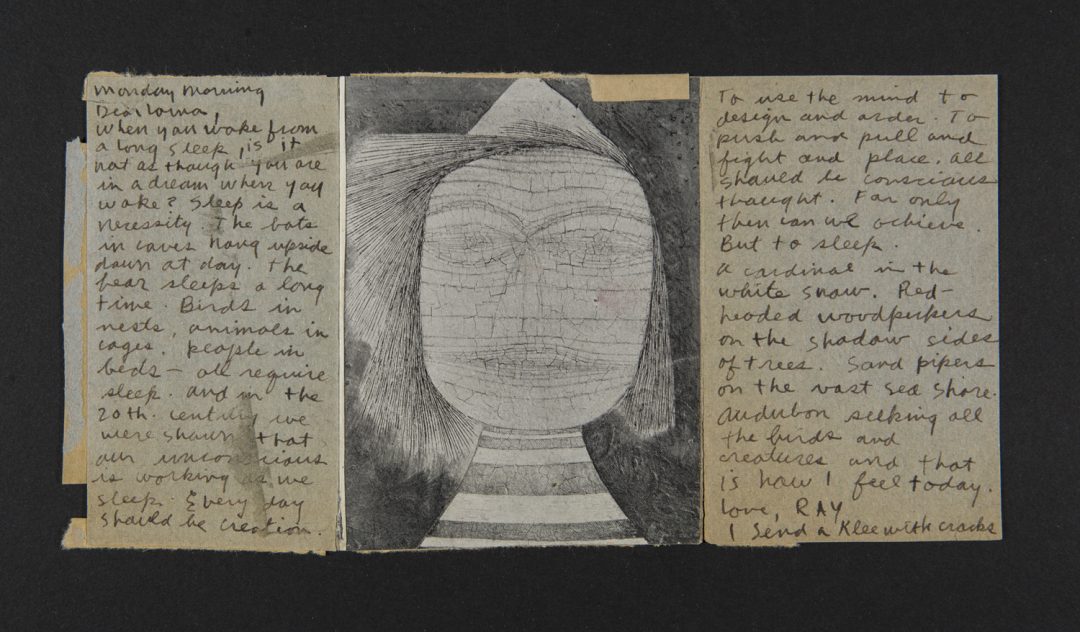 Monday Morning
Dear Lorna,
When you wake from
a long sleep, is it
not as though you are
in a dream where you
wake? Sleep is a
necessity The bats
in caves hang upside
down at day. the
bear sleeps a long
time. Birds in
nests, animals in
cages. people in
beds — all require
sleep. and in the
20th. century we
were shown that
our unconscious
is working as we
sleep. Every day
should be creation.
To use the mind to
design and order. To
push and pull and
fight and place. all
should be conscious
thought. For only
then can we achieve.
But to sleep.
a cardinal in the
white snow. Red-
headed woodpeckers
on the shadow sides
of trees. Sand pipers
on the vast sea shore.
audubon seeking all
the birds and
creatures and that
is how I feel today.
love, RAY
I send a Klee with cracks